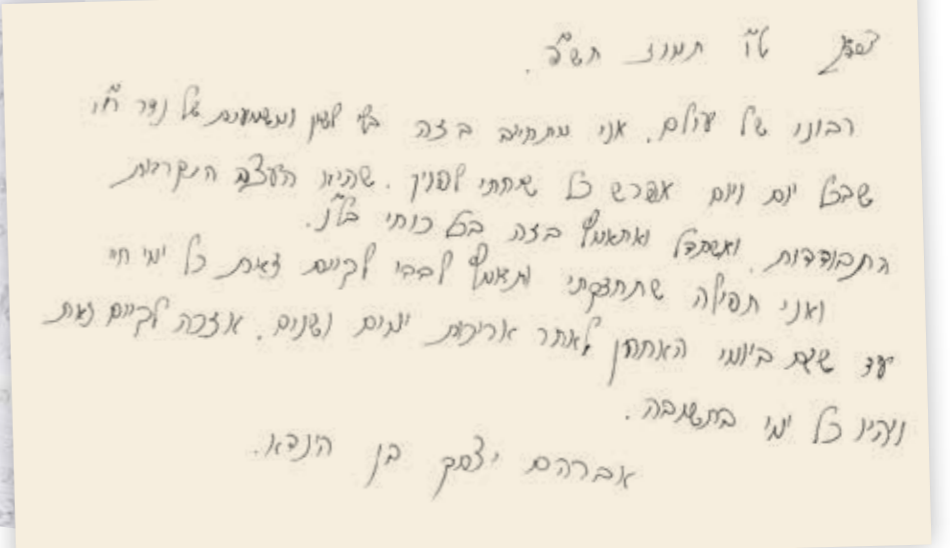 ט"ו תמוז תש"פ.
רבונו של עולם. אני מתחייב בזה בלי לשון ומשמעות של נדר ח"ו
שבכל יום ויום אפרש כל שיחתי לפניך. שהיא העצה הנקראת
התבודדות. ואשתדל ואתאמץ בזה בכל כוחי בל"נ.
ואני תפילה שתחזקני ותאמץ לבבי לקיים זאת כל ימי חיי
עד שגם ביומי האחרון לאחר אריכות ימים ושנים. אזכה לקיים זאת
ויהיו כל ימי בתשובה.
אברהם יצחק בן הינדא.